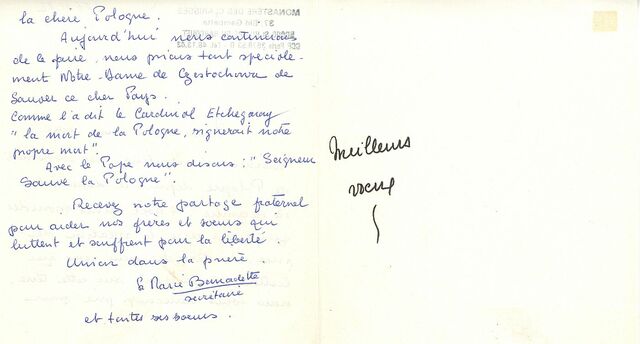 la chère Pologne.
MONASTÈRE DES CLARISSES
37
Aujourd'hui nous continuons
de le faire, nous prions tout spéciale-
ment Notre-Dame de Czestochowa de
Sauver ce cher Pays.
Comme l'a dit le Cardinal Etchegaray
"la mort de la Pologne, signerait notre
propre mort".
Avec le Pape nous disons : "Seigneur
Sauve la Pologne".
Recevez notre partage fraternel
pour aider nos frères et soeurs qui
luttent et souffrent pour la liberté.
Union dans la prière.
Sr Marie Bernadette
secrétaire
et toutes ses soeurs.
Meilleurs
voeux